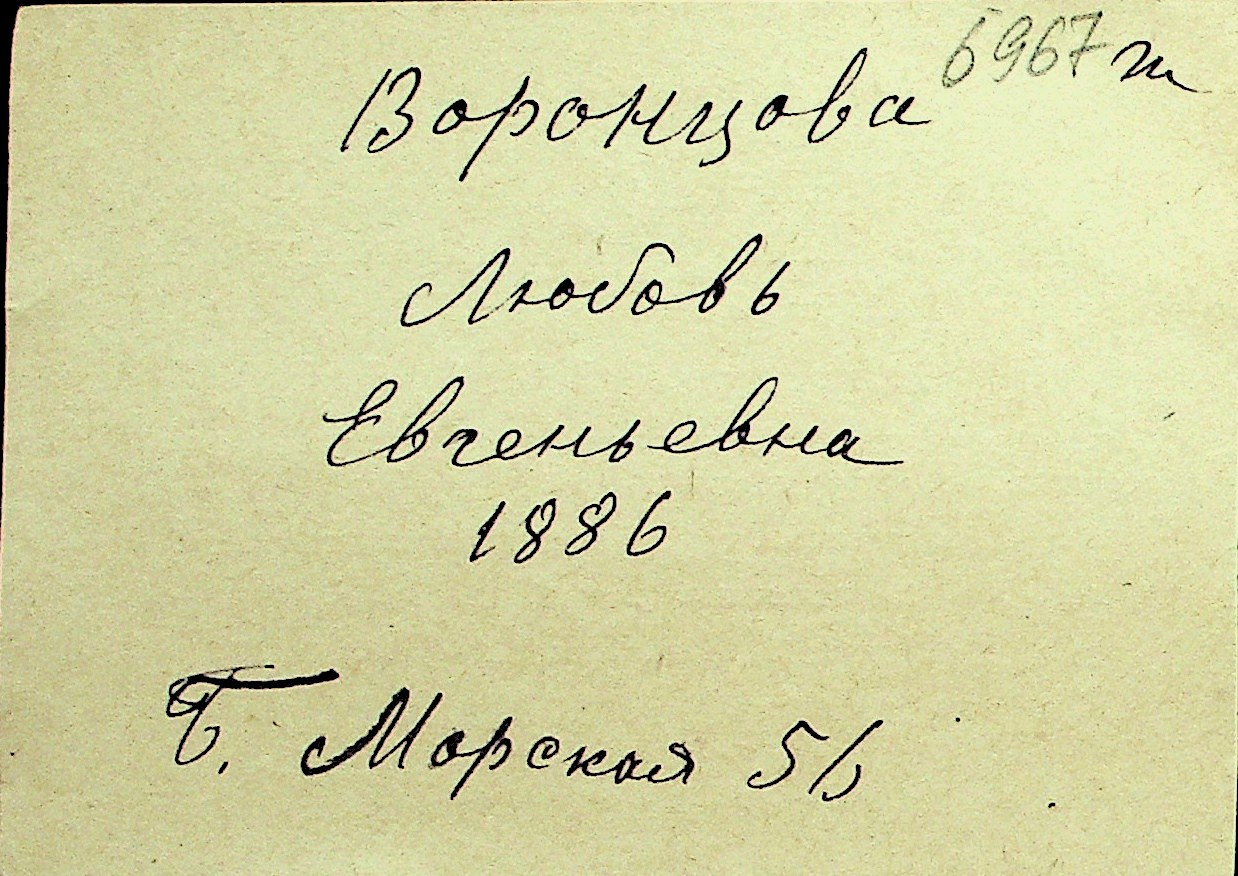 6967 т
Воронцова
Любовь
Евгеньевна
1886
Б. Морская